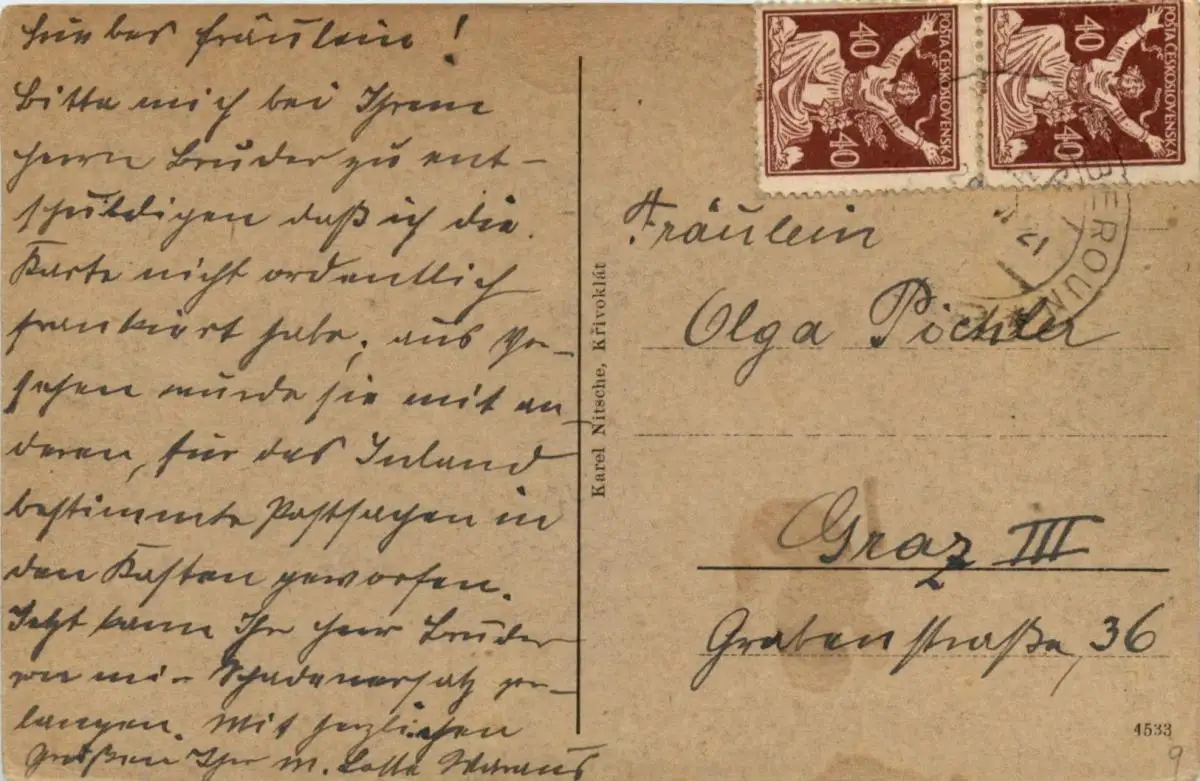 Liebes Fräulein!
Bitte mich bei Ihrem
Herrn Bruder zu ent-
schuldigen daß ich die
Karte nicht ordentlich
frankiert habe, aus Ver-
sehen wurde sie mit an
deren, für das Inland
bestimmte Postsachen in
den Kasten geworfen.
Jetzt kann Ihr Herr Bruder
von mir Schadenersatz ver-
langen. Mit herzlichen
Grüßen Ihr
Karel Nitsche, Křivoklát
POŠTA ČESKOSLOVENSKÁ
40 40
POŠTA ČESKOSLOVENSKÁ
40 40
BEROUN
Fräulein
Olga Pichler
Graz III
Grabenstraße, 36
4533
9